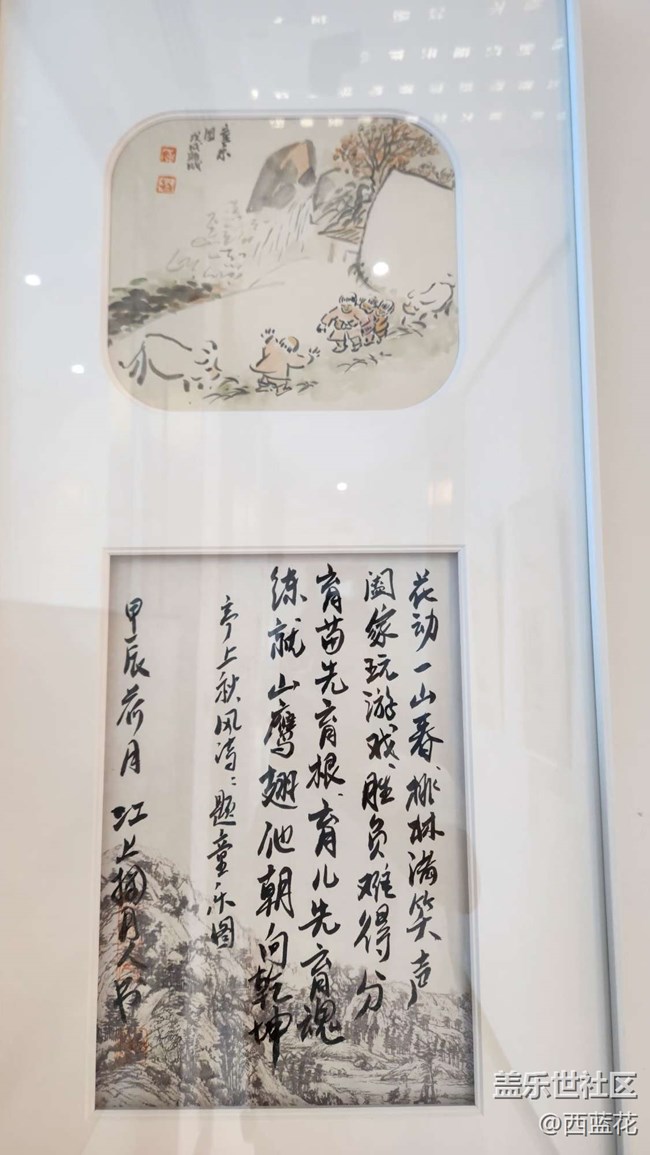 童乐
图
花动一山春、桃林满笑声
阖家玩游戏、胜负难得分
育苗先育根、育儿先育魂
练就山鹰翅他朝向乾坤
亭上秋风诗：题童乐图
甲辰荷月 江上摘月人书
盖乐世社区
@西蓝花